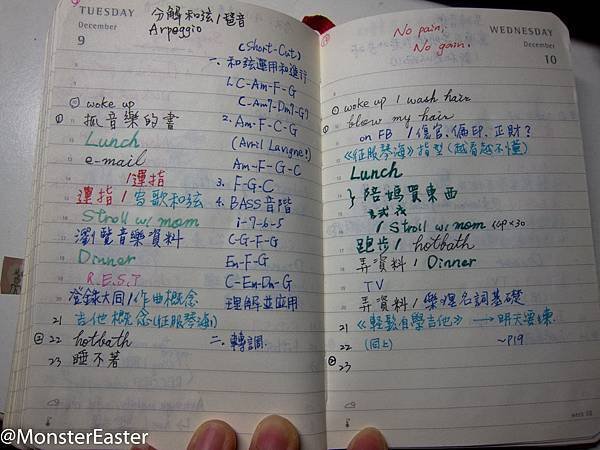 TUESDAY
December
9
分解和弦/琶音
Arpeggio
(Short-Cut)
一、和弦運用和進行
1. C-Am-F-G
C-Am7-Dm7-G7
2. Am-F-C-G
(Avril Lavigne!)
Am-F-G-C
3. F-G-C
4. BASS音階
1-7-6-5
C-G-F-G
Em-F-G
C-Em-Dm-G
理解並應用
二、轉調.
woke up
抓音樂的書
Lunch
e-mail
/運指
運指/寫歌和弦
Stroll w/ mom
瀏覽音樂資料
Dinner
R.E.S.T
登錄大同/作曲概念
吉他概念(征服琴海1)
21
22 hotbath
23 睡不著
WEDNESDAY
December
10
No pain,
No gain.
woke up / wash hair
blow my hair
on FB / 傷官.偏印.正財?
《征服琴海》指型(越看越不懂)
Lunch
陪媽買東西
/ Stroll w/ mom
跑步/ hotbath
弄資料/ Dinner
TV
弄資料/樂理名詞基礎
21 《輕鬆自學吉他》→明天要練
22 (同上) ~P19
23
week 50
@MonsterEaster